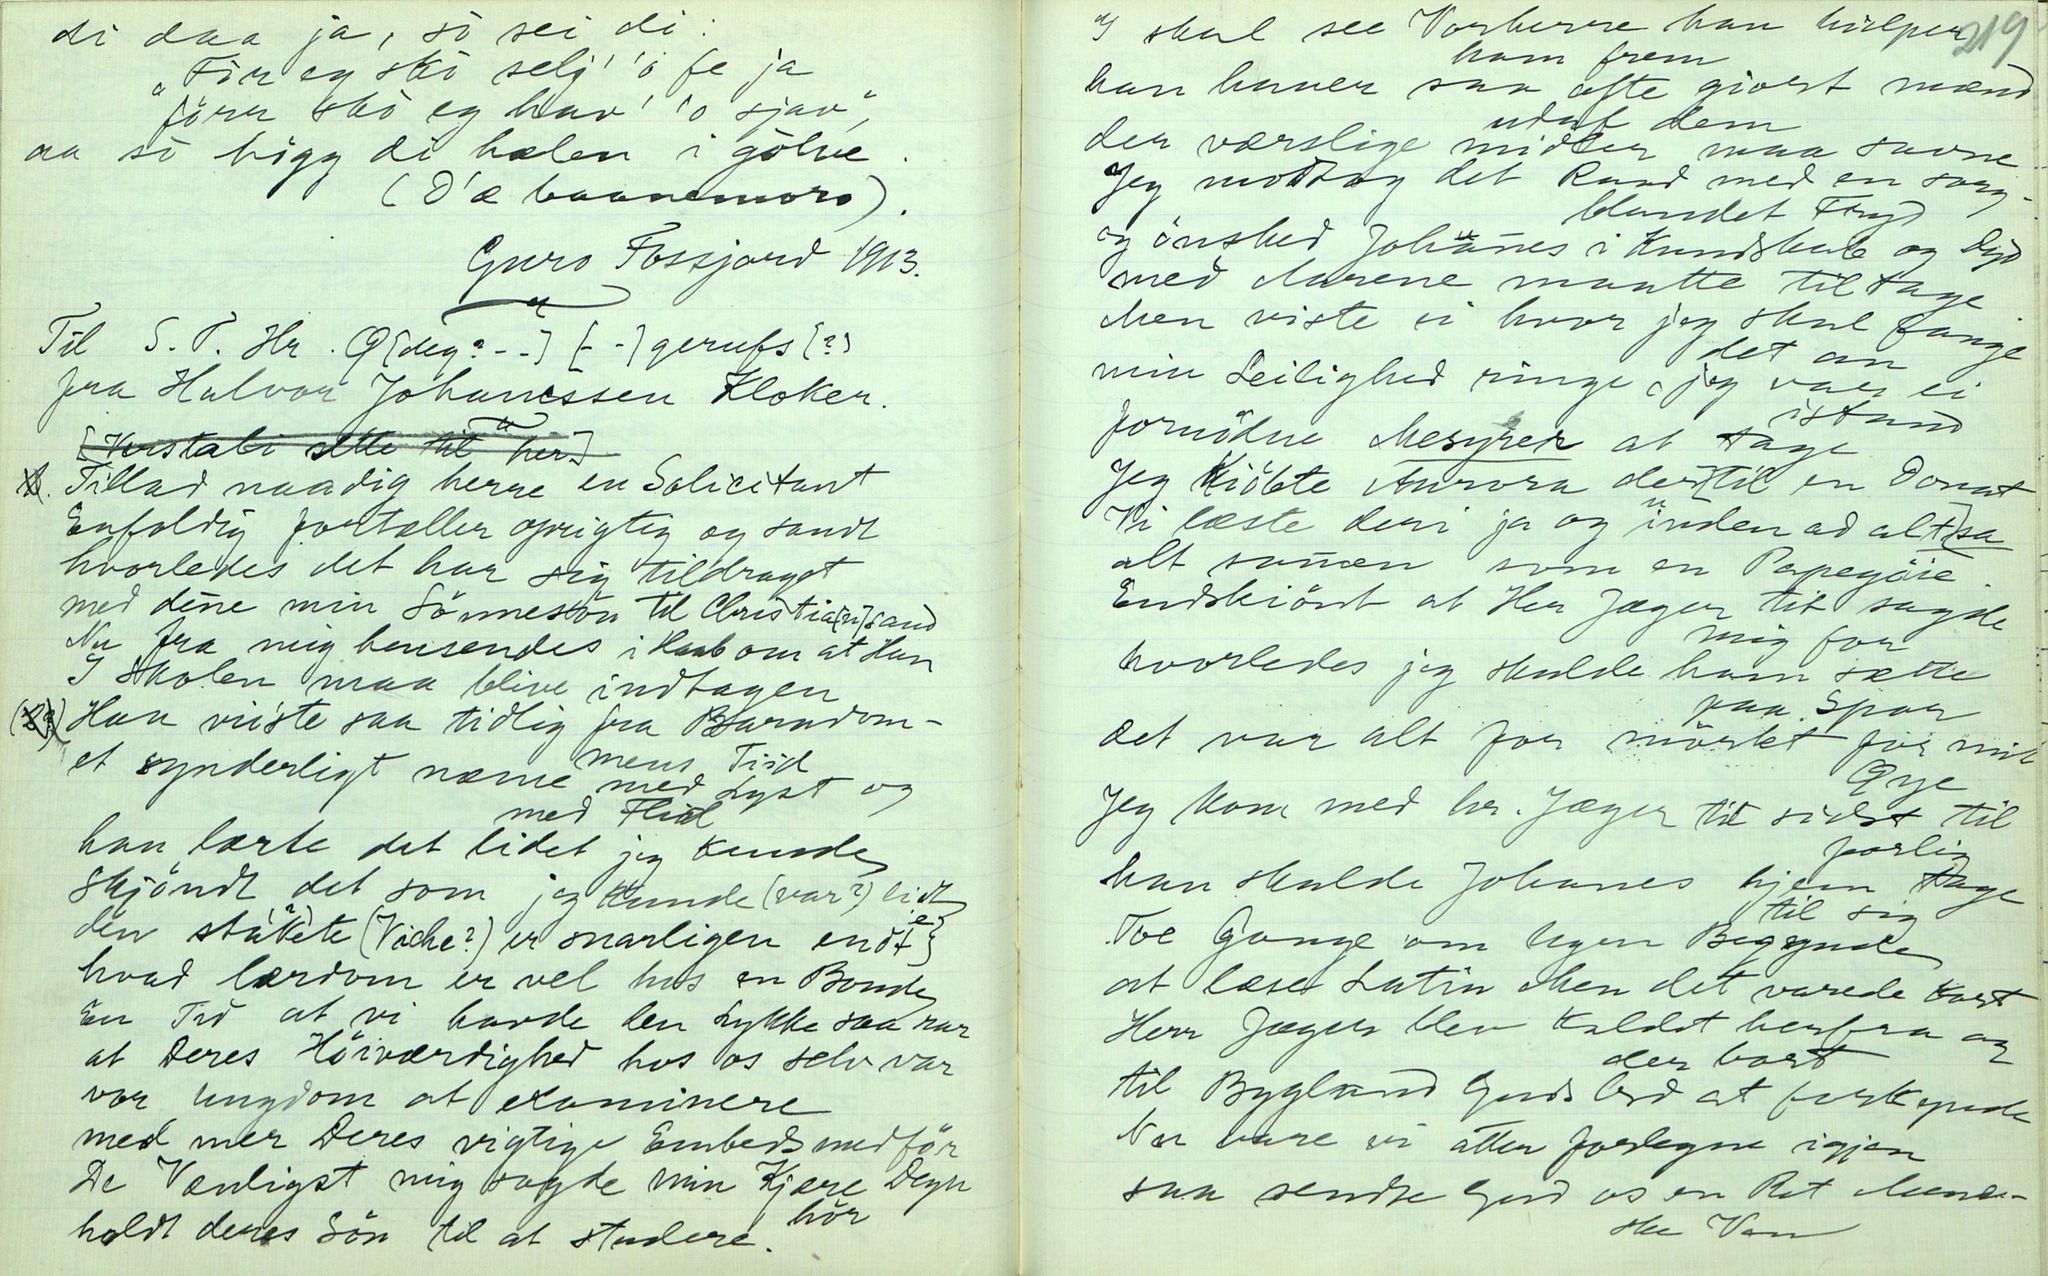 di daa ja, sò sei di:
"Fòr eg skò selj' 'ò fe ja
förr skò eg hav' 'o sjav",
aa sò högg di hælen i gòlve.
(D'æ baanemoro).
Guro Fossjord 1913.
Til S. T. Hr. O[deg? - -] [- -] gerufs [?]
fra Halvor Johanessen Kloker.
[Verstabi sette til her.]
Tillad naadig herre en Solicitant
Enfoldig fortæller oprigtig og sandt
hvorledes det har sig tildraget
med dene min Sönnesön til Christia[n]sand
Nu fra mig hensendes i Haab om at Han
I skolen maa blive indtagen
(2?) Han viiste saa tidlig fra Barndom-
mens Tiid
et synderligt næme med Lyst og
med Flid
han lærte det lidet jeg kunde
Skjöndt det som jeg kunde (var?) lidt
den stakete (Viche?) er snarligen endt [e]
hvad lærdom er vel hos en Bonde
En Tid at vi havde den Lykke saa rar
at Deres Höiværdighed hos os selv var
vor ungdom at examinere
med mer Deres vigtige Embeds medför
De Vænligst mig sagde min Kjære Degn
hör
holdt deres Sön til at studere.
219
I skal see Vorherre han hielper
ham frem
han haver saa ofte giort mænd
udaf dem
der værslige midler maa savne
Jeg modtog det Raad med en sorg-
blandet Fryd
og önsked Johanes i Kundskab og Dyd
med Aarene maatte til tage
Men viste ei hvor jeg skul fange
det an
min Leilighed ringe, jeg var ei
istand
fornödne Mesyrer at tage
Jeg Kiöbte Aurora der[til en Donat]
Vi læste deri ja og inden ad alt[sa
alt samen som en Papegöie.
Endskiönt at Her Jæger tit sagde
mig for
hvorledes jeg skulde ham sætte
paa Spor
det var alt for mörkt for mit
Øye
Jeg kom med hr. Jæger til sidst til
forlig
han skulde Johanes hjem tage
til sig
Toe Gange om Ugen Begynde
at læse Latin Men det varede kort
Herr Jæger blev kaldet herfra og
der bort
til Bygland Guds Ord at forkynde
Nu vare vi atter forlegne igjen
saa sendte Gud os en Ret Menne-
ske Ven